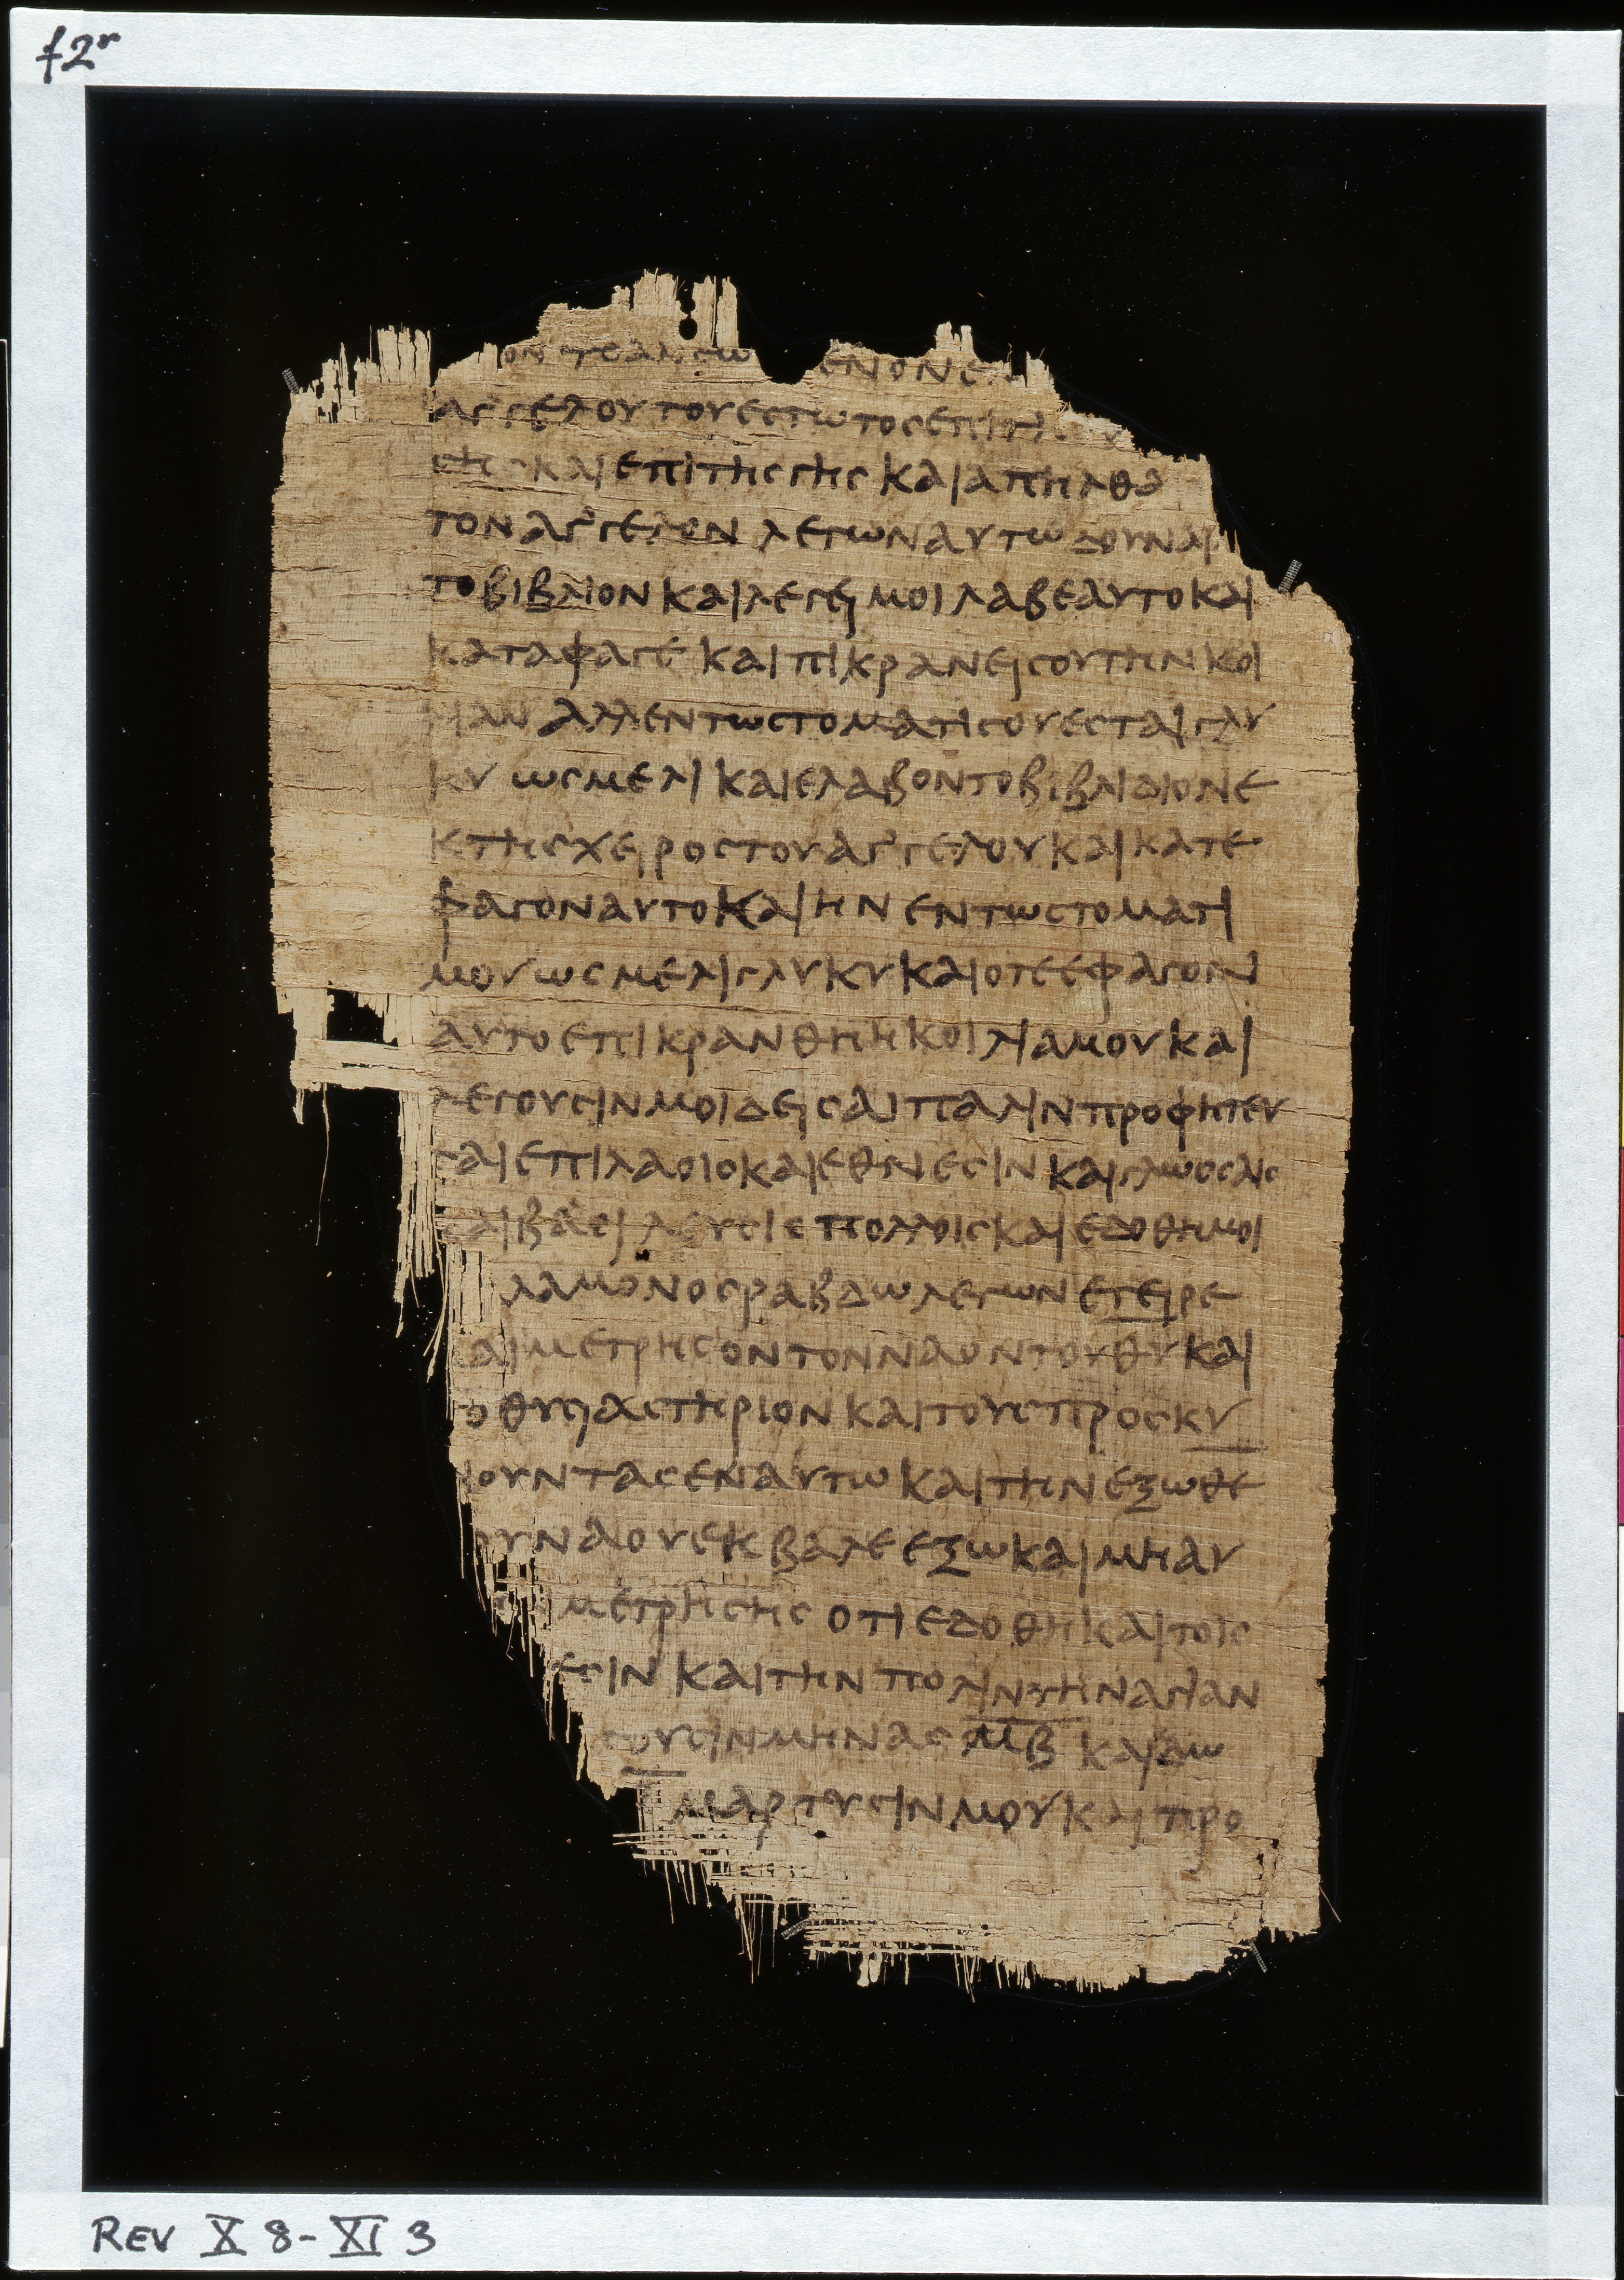 f2r
ΑΓ'ΓΕΛΟΥ ΤΟΥ ΕΣΤΩΤΟΣ ΕΠΙ
ΣΗΣ ΚΑΙ ΕΠΙ ΤΗΣ ΓΗΣ ΚΑΙ ΑΠΗΛΘΑ
ΤΟΝ ΑΓ'ΓΕΛΟΝ ΛΕΓΩΝ ΑΥΤΩ ΔΟΥΝΑΙ
ΤΟ ΒΙΒΛΙΟΝ ΚΑΙ ΛΕΓΕΙ ΜΟΙ ΛΑΒΕ ΑΥΤΟ ΚΑΙ
ΚΑΤΑΦΑΓΕ ΚΑΙ ΠΙΚΡΑΝΕΙ ΣΟΥ ΤΗΝ ΚΟΙ
ΛΙΑΝ ΑΛΛ ΕΝ ΤΩ ΣΤΟΜΑΤΙ ΣΟΥ ΕΣΤΑΙ ΓΛΥ
ΚΥ ΩΣ ΜΕΛΙ ΚΑΙ ΕΛΑΒΟΝ ΤΟ ΒΙΒΛΙΔΙΟΝ Ε
Κ ΤΗΣ ΧΕΙΡΟΣ ΤΟΥ ΑΓ'ΓΕΛΟΥ ΚΑΙ ΚΑΤΕ
ΦΑΓΟΝ ΑΥΤΟ ΚΑΙ ΗΝ ΕΝ ΤΩ ΣΤΟΜΑΤΙ
ΜΟΥ ΩΣ ΜΕΛΙ ΓΛΥΚΥ ΚΑΙ ΟΤΕ ΕΦΑΓΟΝ
ΑΥΤΟ ΕΠΙΚΡΑΝΘΗ Η ΚΟΙΛΙΑ ΜΟΥ ΚΑΙ
ΛΕΓΟΥΣΙΝ ΜΟΙ ΔΕΙ ΣΑΙ ΠΑΛΙΝ ΠΡΟΦΗΤΕΥ
ΣΑΙ ΕΠΙ ΛΑΟΙΣ ΚΑΙ ΕΘΝΕΣΙΝ ΚΑΙ ΓΛΩΣΣΑΙΣ
ΚΑΙ ΒΑΣΙΛΕΥΣΙΣ ΠΟΛΛΟΙΣ ΚΑΙ ΕΔΟΘΗ ΜΟΙ
ΛΑΜΟΝΟΣ ΡΑΒΔΩ ΛΕΓΩΝ ΕΓΕΙΡΕ
ΚΑΙ ΜΕΤΡΗΣΟΝ ΤΟΝ ΝΑΟΝ ΤΟΥ ΘΥ ΚΑΙ
ΤΟ ΘΥΣΙΑΣΤΗΡΙΟΝ ΚΑΙ ΤΟΥΣ ΠΡΟΣΚΥ
ΝΟΥΝΤΑΣ ΕΝ ΑΥΤΩ ΚΑΙ ΤΗΝ ΕΞΩΘΕ
ΟΥ ΝΑΟΥ ΕΚΒΑΛΕ ΕΞΩ ΚΑΙ ΜΗ ΑΥ
ΜΕΤΡΗΣΗΣ ΟΤΙ ΕΔΟΘΗ ΚΑΙ ΤΟΙΣ
ΕΣΙΝ ΚΑΙ ΤΗΝ ΠΟΛΙΝ ΤΗΝ ΑΓΙΑΝ
ΣΟΥΣΙΝ ΜΗΝΑΣ ΜΒ ΚΑΙ ΔΩ
ΜΑΡΤΥΣΙΝ ΜΟΥ ΚΑΙ ΠΡΟ
REV X 8-XI 3